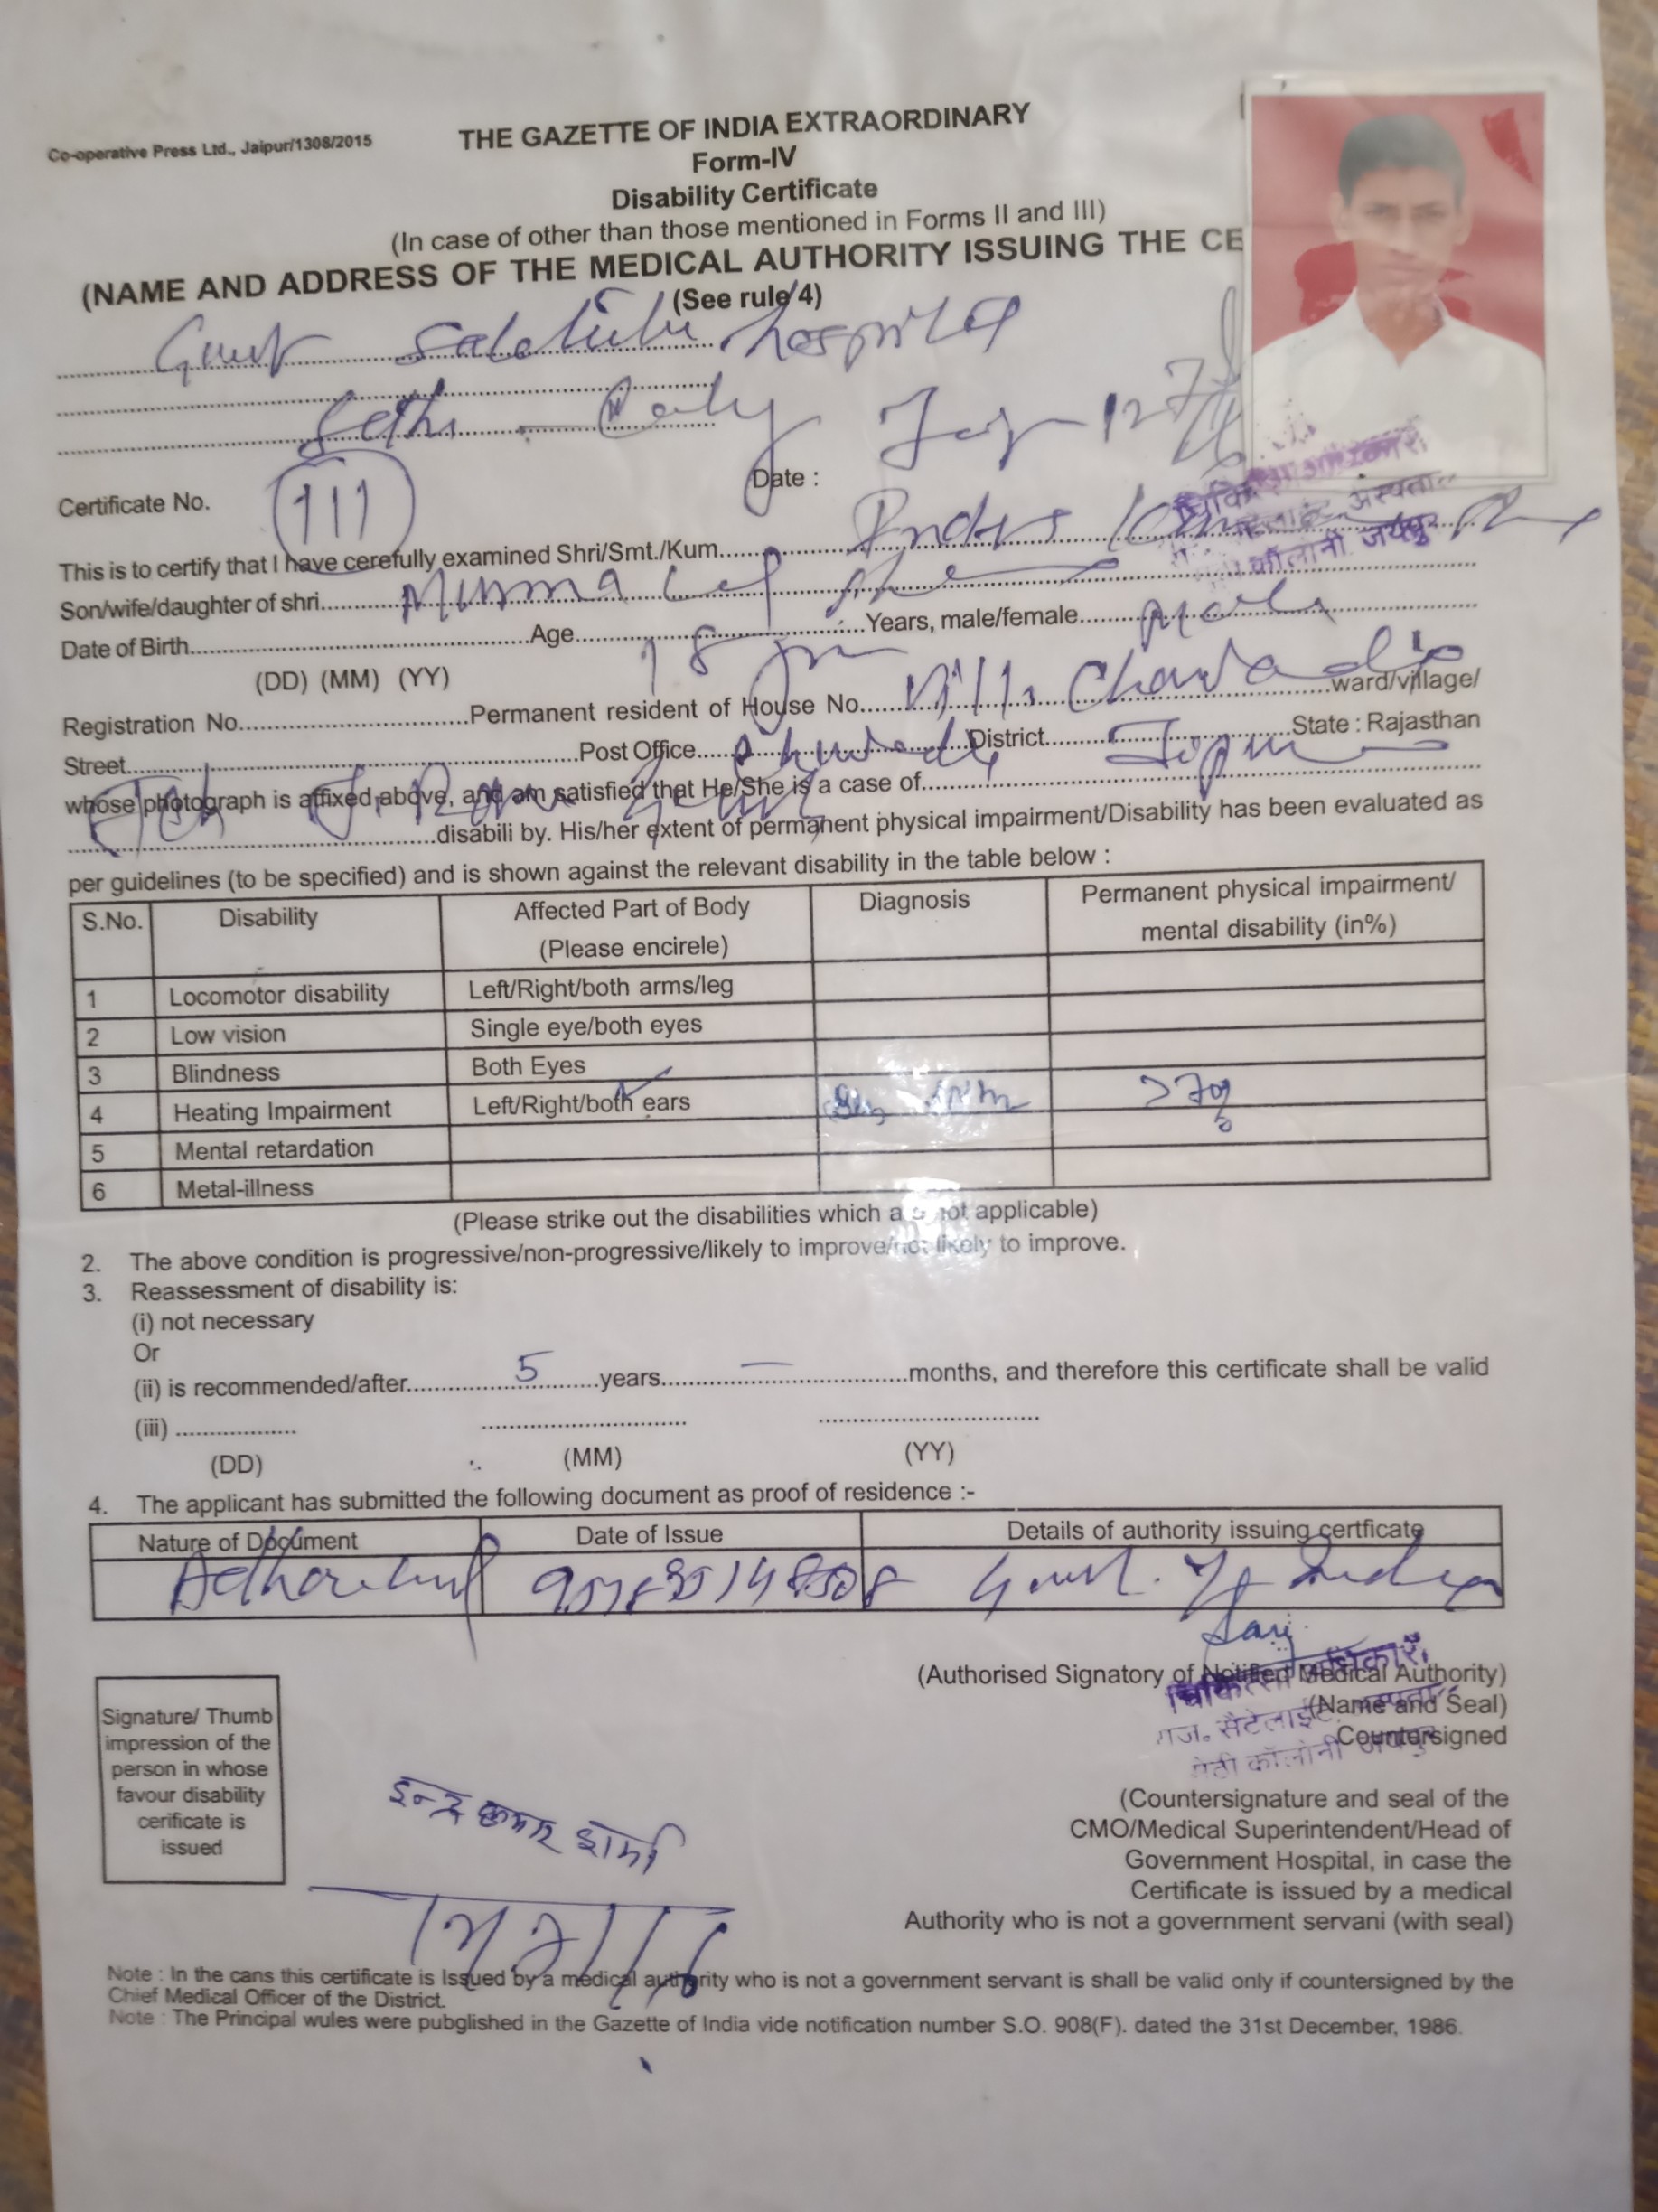 Co-operative Press Ltd., Jaipur/1308/2015
THE GAZETTE OF INDIA EXTRAORDINARY
Form-IV
Disability Certificate
(In case of other than those mentioned in Forms II and III)
(NAME AND ADDRESS OF THE MEDICAL AUTHORITY ISSUING THE CE
(See rule 4)
hospital
Sethi
Certificate No. 111 Date :
This is to certify that I have cerefully examined Shri/Smt./Kum.
Son/wife/daughter of shri. Munna
Date of Birth Age 18 Years, male/female male
(DD) (MM) (YY)
Registration No. Permanent resident of House No. ward/village/
Street Post Office District State : Rajasthan
whose photograph is affixed above, and am satisfied that He/She is a case of
disabili by. His/her extent of permanent physical impairment/Disability has been evaluated as
per guidelines (to be specified) and is shown against the relevant disability in the table below :
S.No. Disability Affected Part of Body (Please encirele) Diagnosis Permanent physical impairment/ mental disability (in%)
1 Locomotor disability Left/Right/both arms/leg
2 Low vision Single eye/both eyes
3 Blindness Both Eyes
4 Heating Impairment Left/Right/both ears
5 Mental retardation
6 Metal-illness
(Please strike out the disabilities which a not applicable)
2. The above condition is progressive/non-progressive/likely to improve/not likely to improve.
3. Reassessment of disability is:
(i) not necessary
Or
(ii) is recommended/after 5 years — months, and therefore this certificate shall be valid
(iii)
(DD) (MM) (YY)
4. The applicant has submitted the following document as proof of residence :-
Nature of Document Date of Issue Details of authority issuing certficate
Govt. of India
(Authorised Signatory of Notified Medical Authority)
(Name and Seal)
राज. सैटेलाईट
Countersigned
सेठी कॉलोनी जयपुर
Signature/ Thumb
impression of the
person in whose
favour disability
cerificate is
issued
इन्द्र कुमार शर्मा
(Countersignature and seal of the
CMO/Medical Superintendent/Head of
Government Hospital, in case the
Certificate is issued by a medical
Authority who is not a government servani (with seal)
Note : In the cans this certificate is Issued by a medical authority who is not a government servant is shall be valid only if countersigned by the
Chief Medical Officer of the District.
Note : The Principal wules were pubglished in the Gazette of India vide notification number S.O. 908(F). dated the 31st December, 1986.